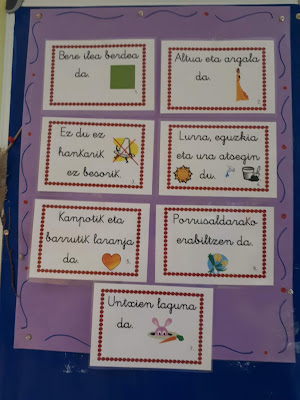 Bere ilea berdea
da.
1.
Altua eta argala
da.
2.
Ez du ez
hankarik
ez besorik.
3.
Lurra, eguzkia
eta ura atsegin
du.
4.
Kanpotik eta
barrutik laranja
da.
5.
Porrusaldarako
erabiltzen da.
6.
Untxien laguna
da.
7.